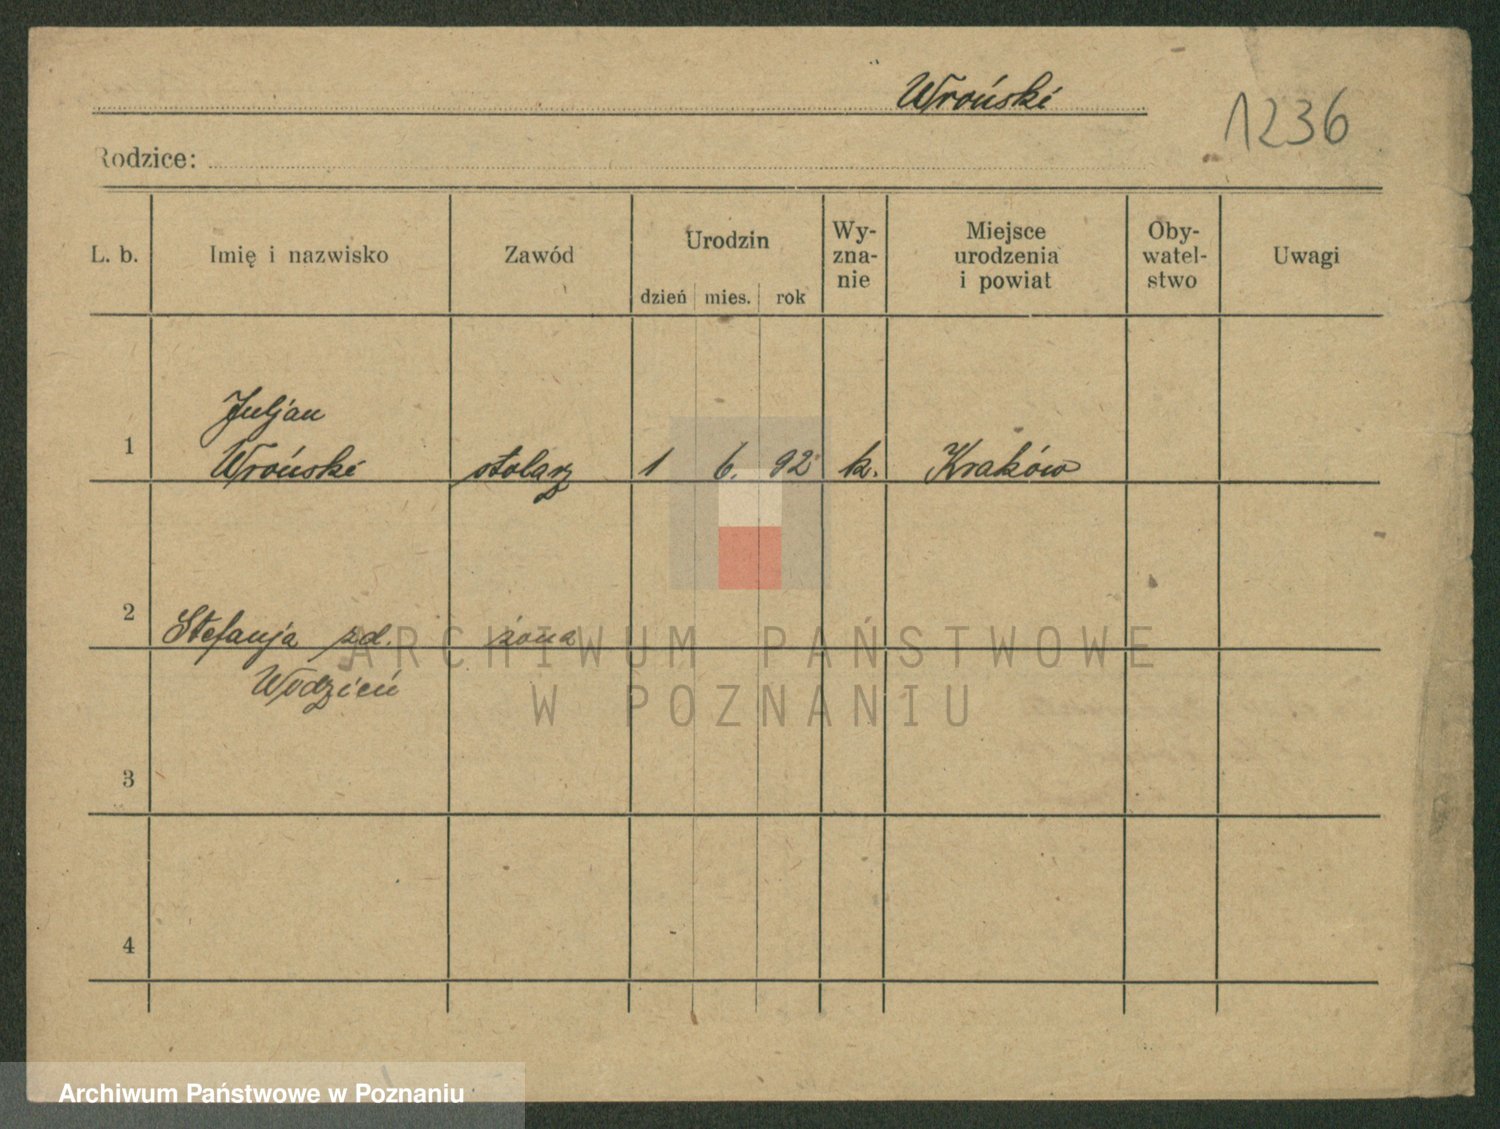 Wroński
1236
Rodzice:
L. b. Imię i nazwisko Zawód Urodzin dzień mies. rok Wy-zna-nie Miejsce urodzenia i powiat Oby-watel-stwo Uwagi
Juljan
1 Wroński stolarz 1 6. 92 k. Kraków
2 Stefanja zd. żona
Wodzień
3
4
ARCHIWUM PAŃSTWOWE
W POZNANIU
Archiwum Państwowe w Poznaniu